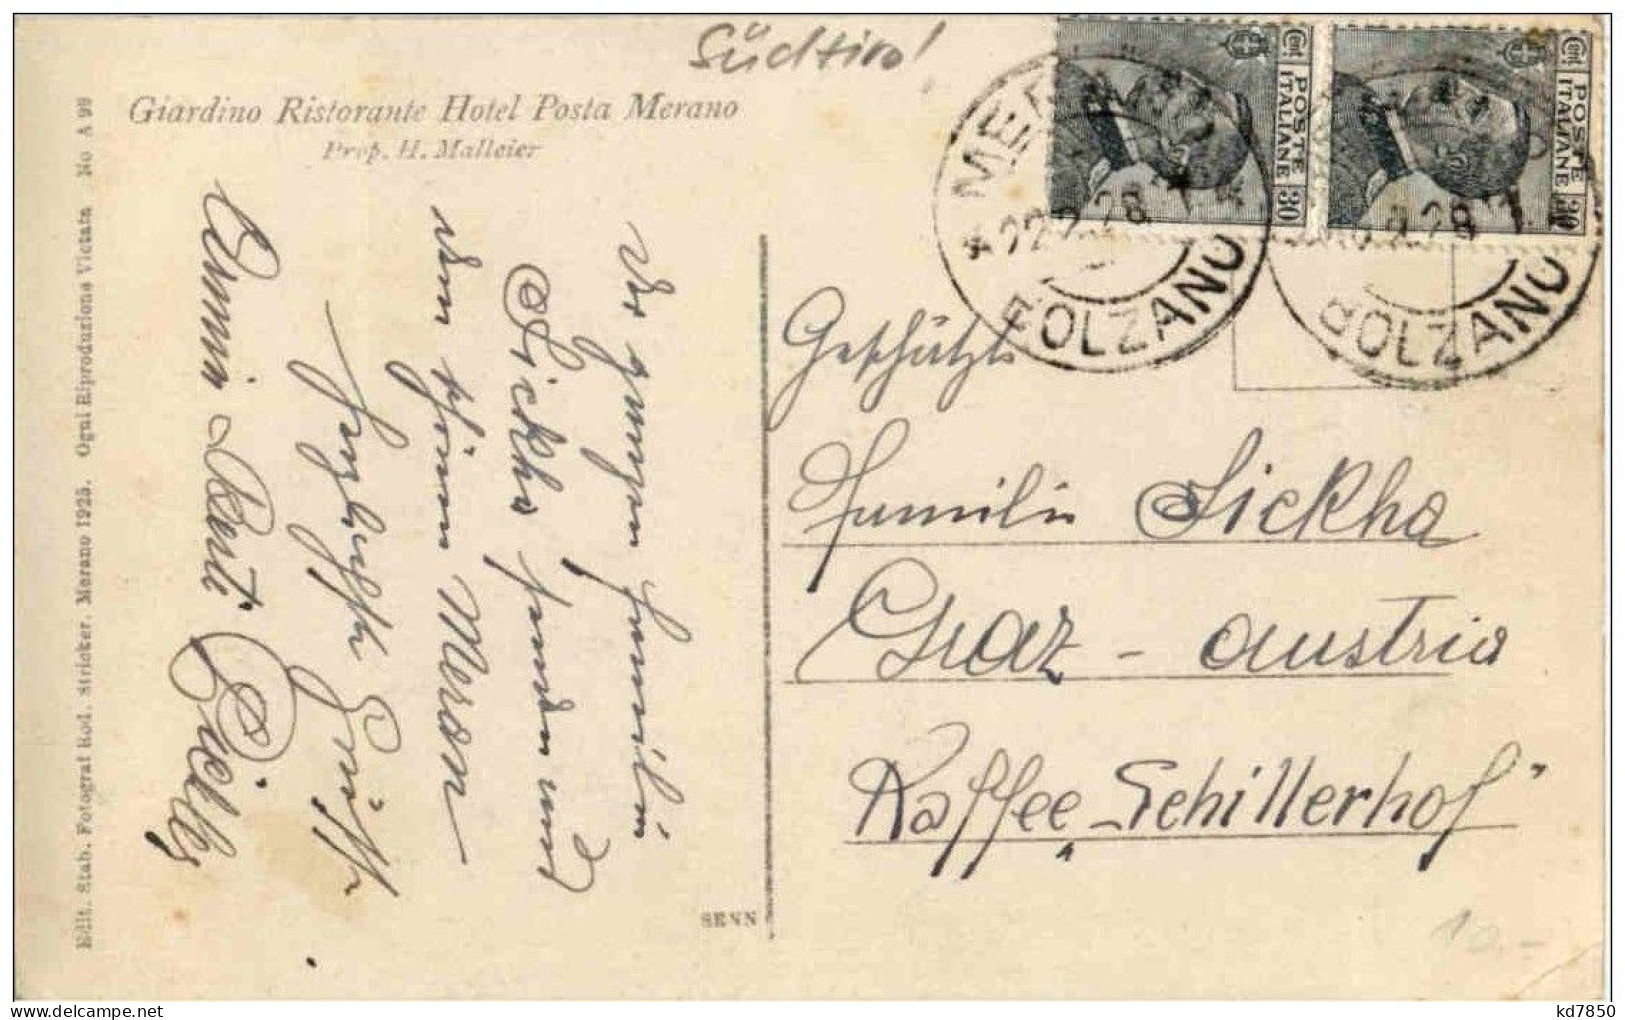 Südtirol
Giardino Ristorante Hotel Posta Merano
Prop. H. Malleier
Edit. Stab. Fotograf Rod. Stricker, Merano 1925. Ogni Riproduzione Vietata No A 99
Der ganzen Familie
Sickha senden und
vom schönen Meran
herzlichste Grüße
SENN
Cent. 30
POSTE ITALIANE
Cent. 30
POSTE ITALIANE
BOLZANO
BOLZANO
Geschätzte
Familie Sickha
Graz - Austria
Kaffee „Schillerhof"
10.-
kd7850